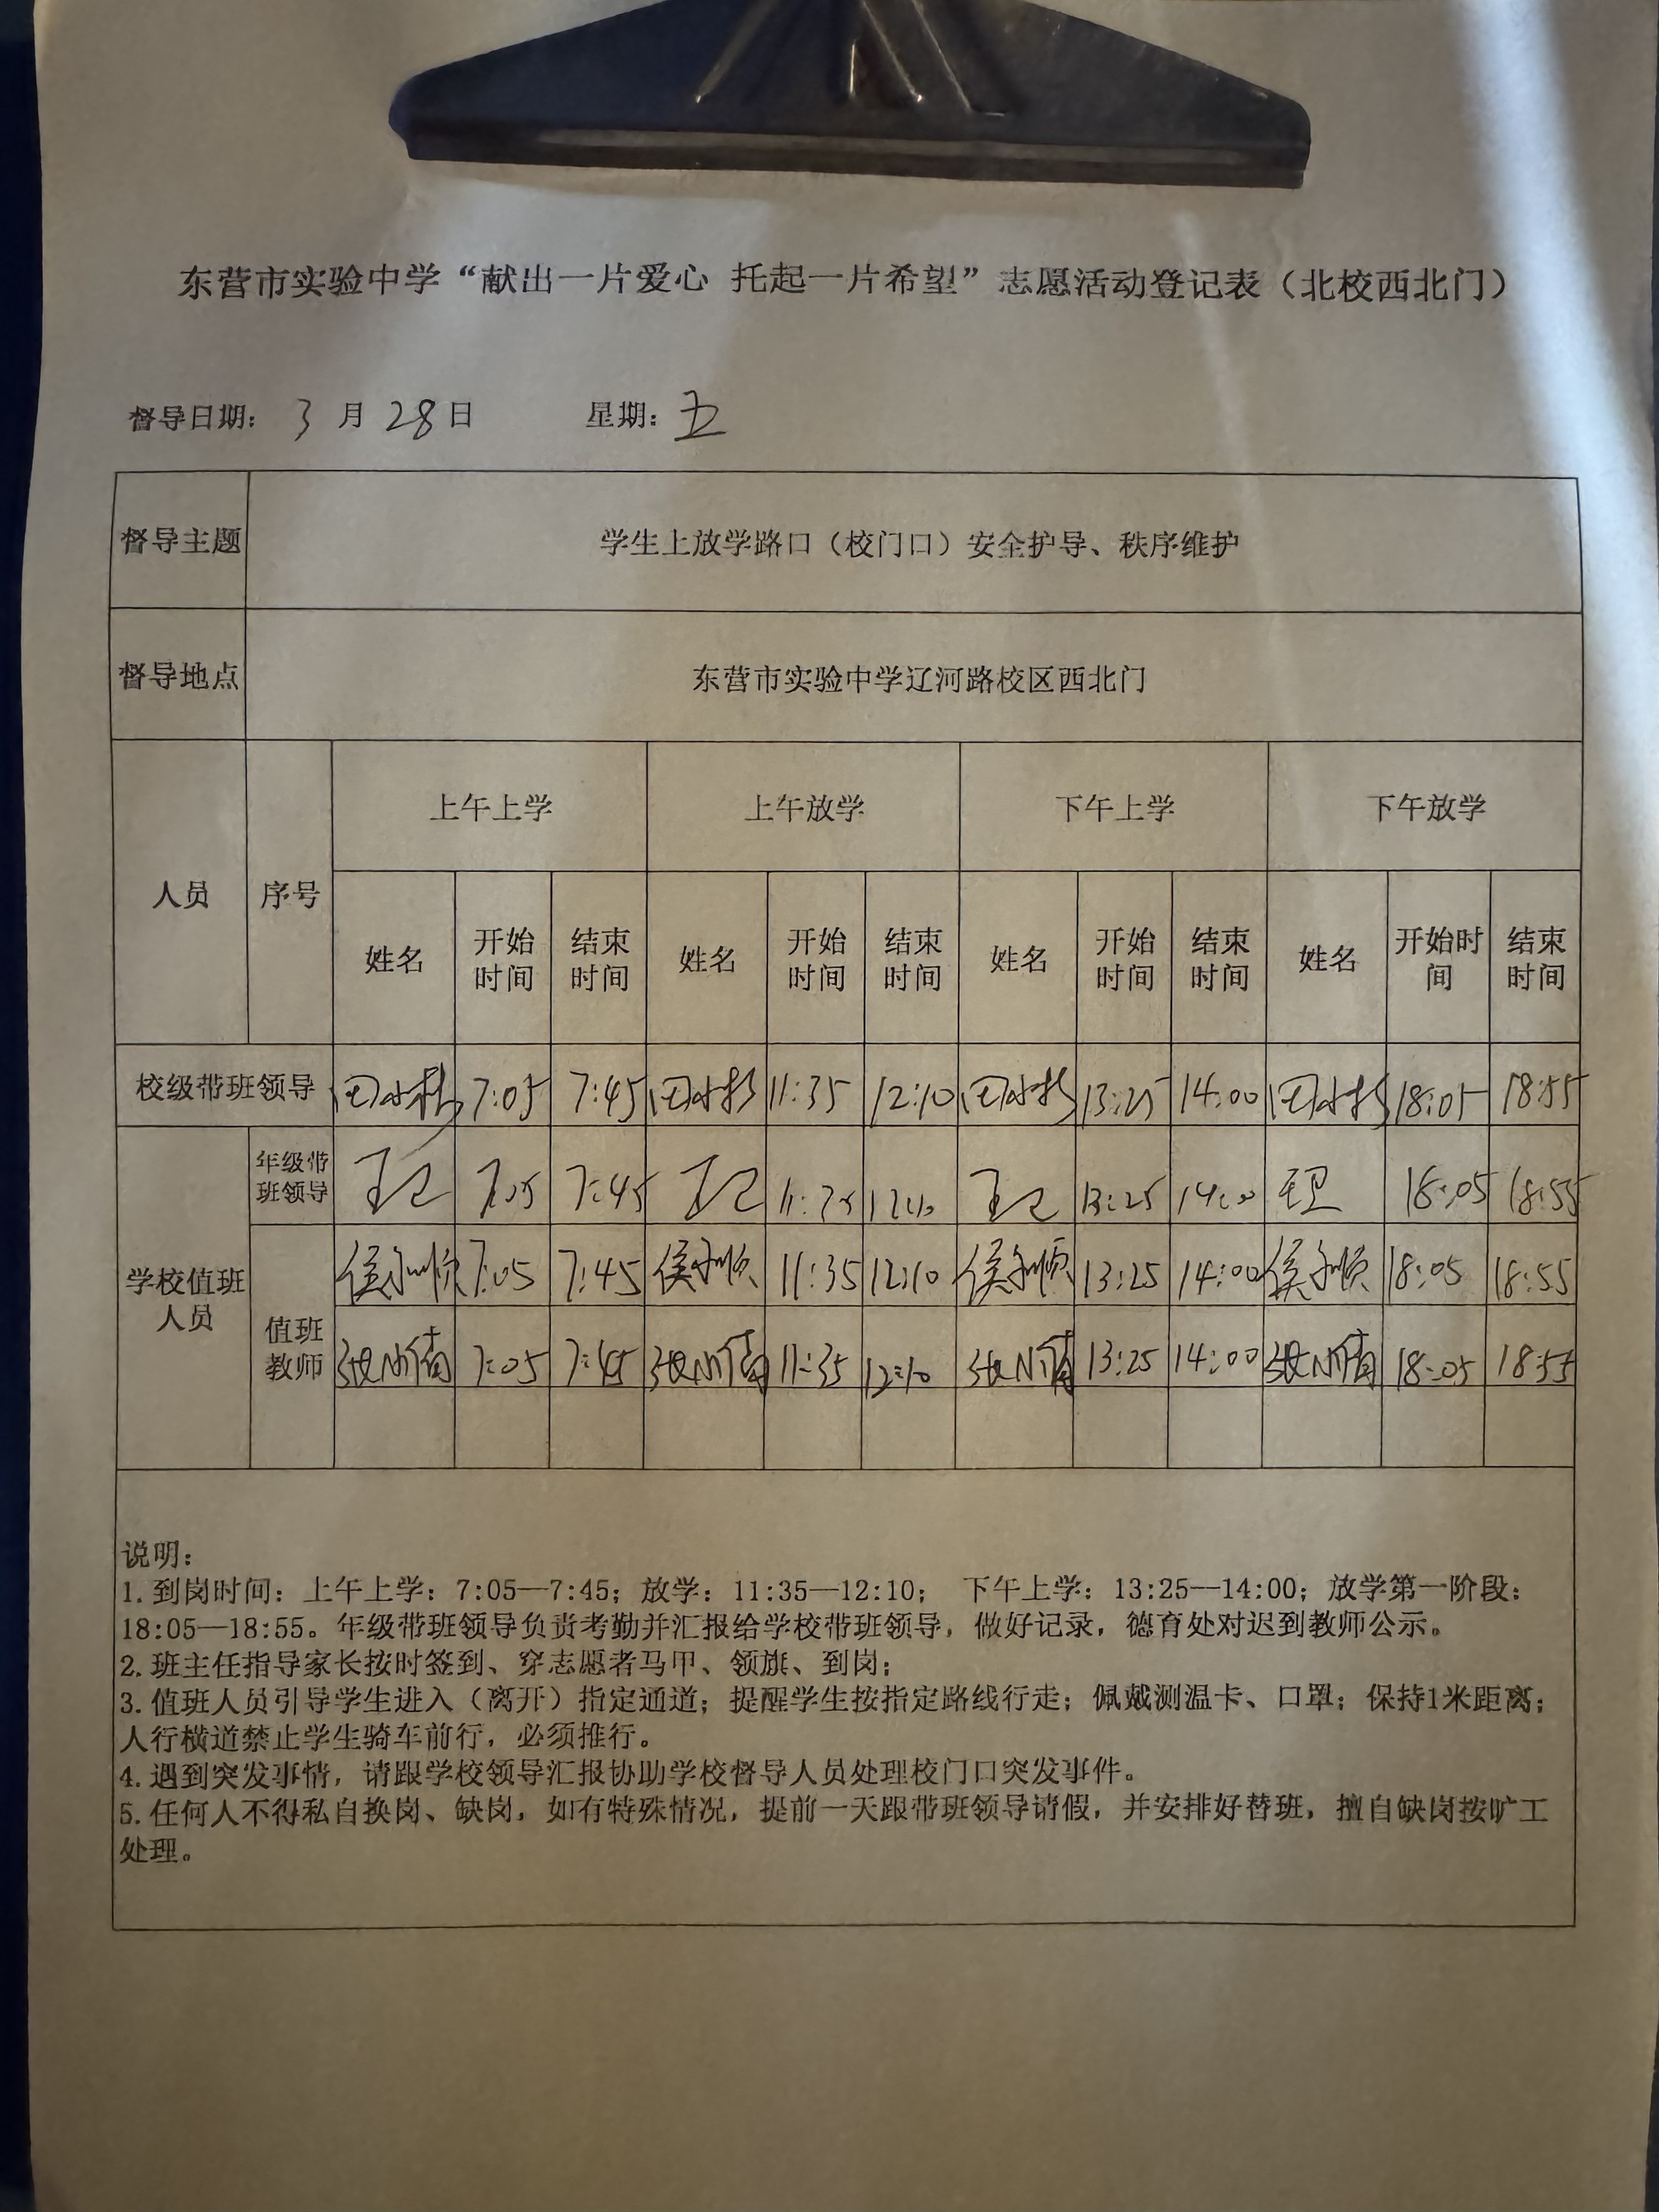 东营市实验中学“献出一片爱心 托起一片希望”志愿活动登记表（北校西北门）
督导日期： 3 月 28 日 星期： 五
督导主题 学生上放学路口（校门口）安全护导、秩序维护
督导地点 东营市实验中学辽河路校区西北门
人员 序号 上午上学 上午放学 下午上学 下午放学
姓名 开始时间 结束时间 姓名 开始时间 结束时间 姓名 开始时间 结束时间 姓名 开始时间 结束时间
校级带班领导 7:05 7:45 11:35 12:10 13:25 14:00 18:05 18:55
学校值班人员
年级带班领导 王卫 7:05 7:45 王卫 11:35 12:10 王卫 13:25 14:00 王卫 18:05 18:55
值班教师
侯永顺 7:05 7:45 侯永顺 11:35 12:10 侯永顺 13:25 14:00 侯永顺 18:05 18:55
7:05 7:45 11:35 12:10 13:25 14:00 18:05 18:55
说明：
1.到岗时间：上午上学：7:05—7:45；放学：11:35—12:10； 下午上学：13:25—14:00；放学第一阶段：
18:05—18:55。年级带班领导负责考勤并汇报给学校带班领导，做好记录，德育处对迟到教师公示。
2.班主任指导家长按时签到、穿志愿者马甲、领旗、到岗；
3.值班人员引导学生进入（离开）指定通道；提醒学生按指定路线行走；佩戴测温卡、口罩；保持1米距离；
人行横道禁止学生骑车前行，必须推行。
4.遇到突发事情，请跟学校领导汇报协助学校督导人员处理校门口突发事件。
5.任何人不得私自换岗、缺岗，如有特殊情况，提前一天跟带班领导请假，并安排好替班，擅自缺岗按旷工
处理。